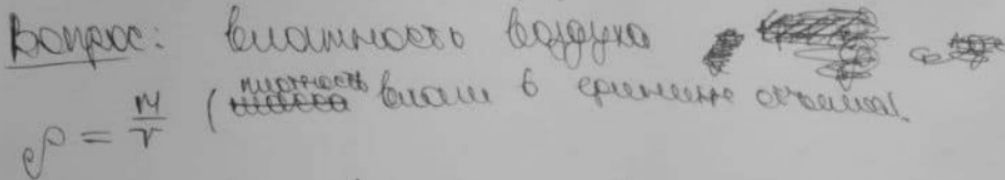 Вопрос: влажность воздуха
ρ = m/V (плотность влаги в единице объёма.